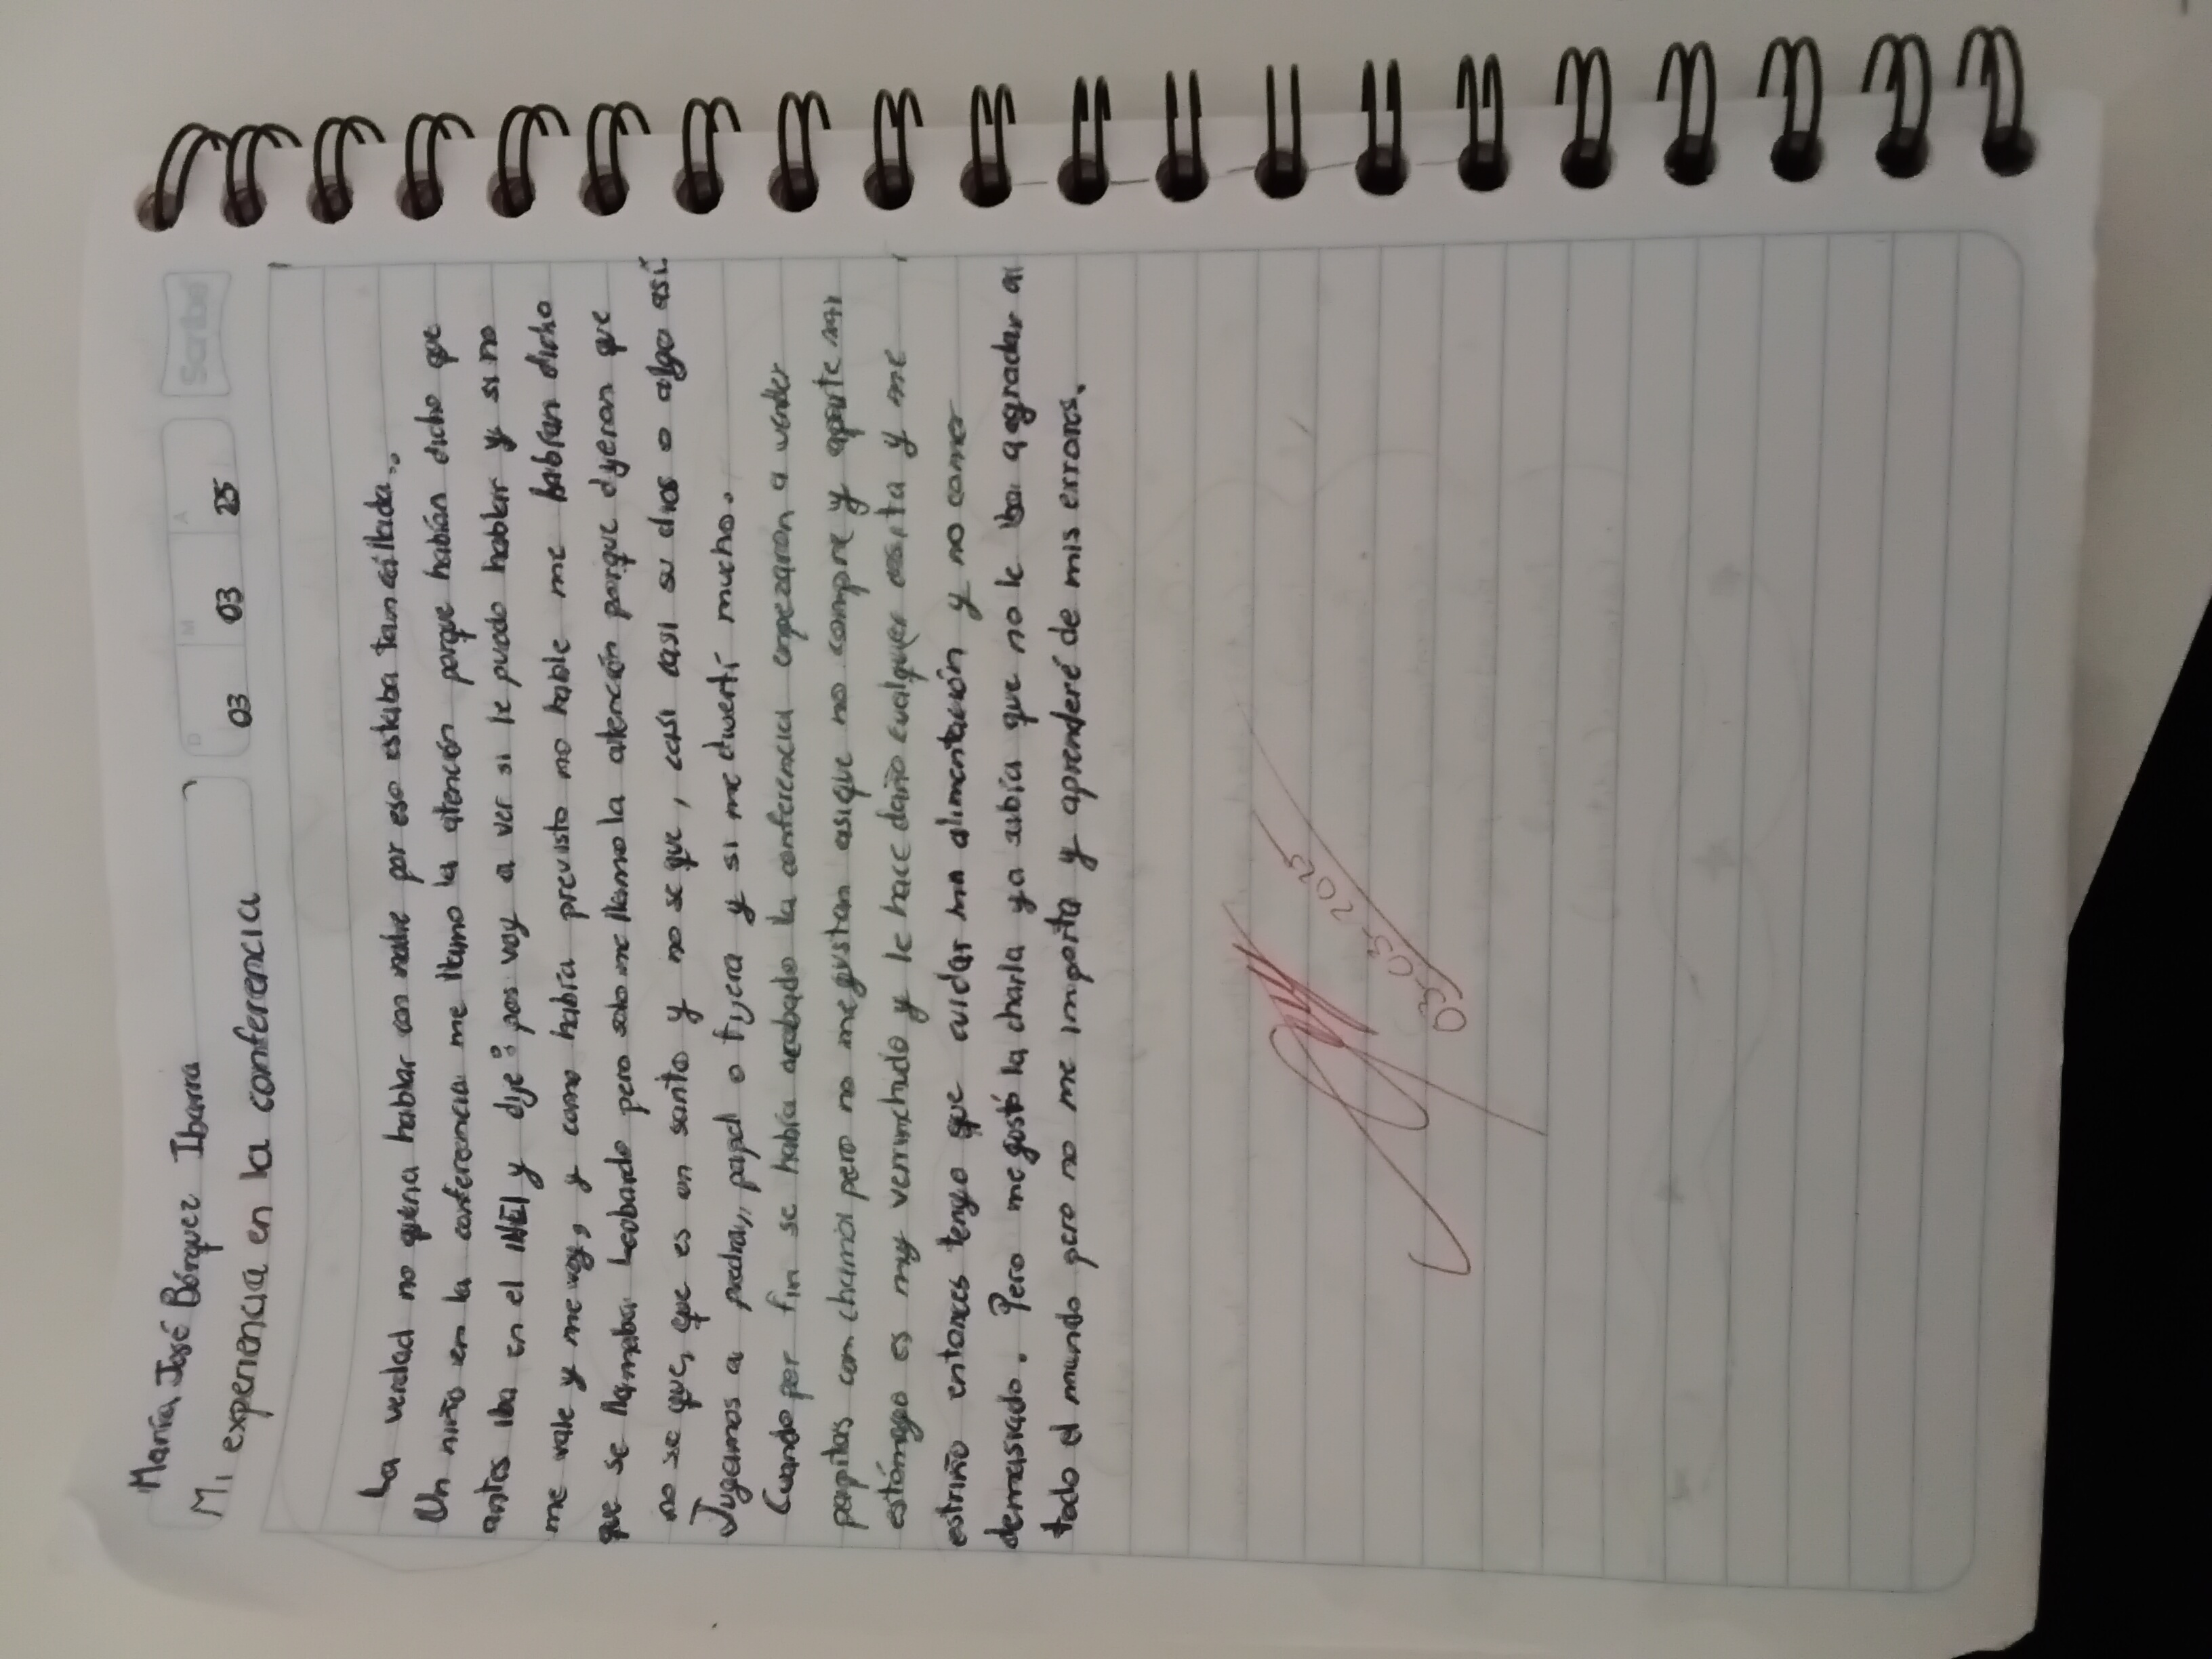 Scribe
D M A
03 03 25
María José Bórquez Ibarra
Mi experiencia en la conferencia
La verdad no queria hablar con nadie por eso estaba tan callada.
Un niño en la conferencia me llamo la atención porque habían dicho que
antes iba en el INEI y dije: pos voy a ver si le puedo hablar y si no
me vale y me voy, y como habia previsto no hable me habían dicho
que se llamaba Leobardo pero solo me llamo la atención porque dijeron que
no se que, que es un santo y no se que, casi casi su dios o algo así.
Jugamos a piedra, papel o tijera y si me diverti mucho.
Cuando por fin se habia acabado la conferencia empezaron a vender
papitas con chamoi pero no me gustan asique no compre y aparte mi
estómago es muy verinchido y le hace daño cualquier cosita y me
estriño entonces tengo que cuidar mi alimentación y no comer
demasiado. Pero me gustó la charla ya sabía que no le iba a agradar a
todo el mundo pero no me importa y aprenderé de mis errores.
03-03-2025